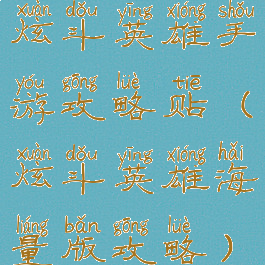 xuàn dǒu yīng xióng shǒu
炫斗英雄手
yóu gōng lüè tiē
游攻略贴（
xuàn dǒu yīng xióng hǎi
炫斗英雄海
liáng bǎn gōng lüè
量版攻略）